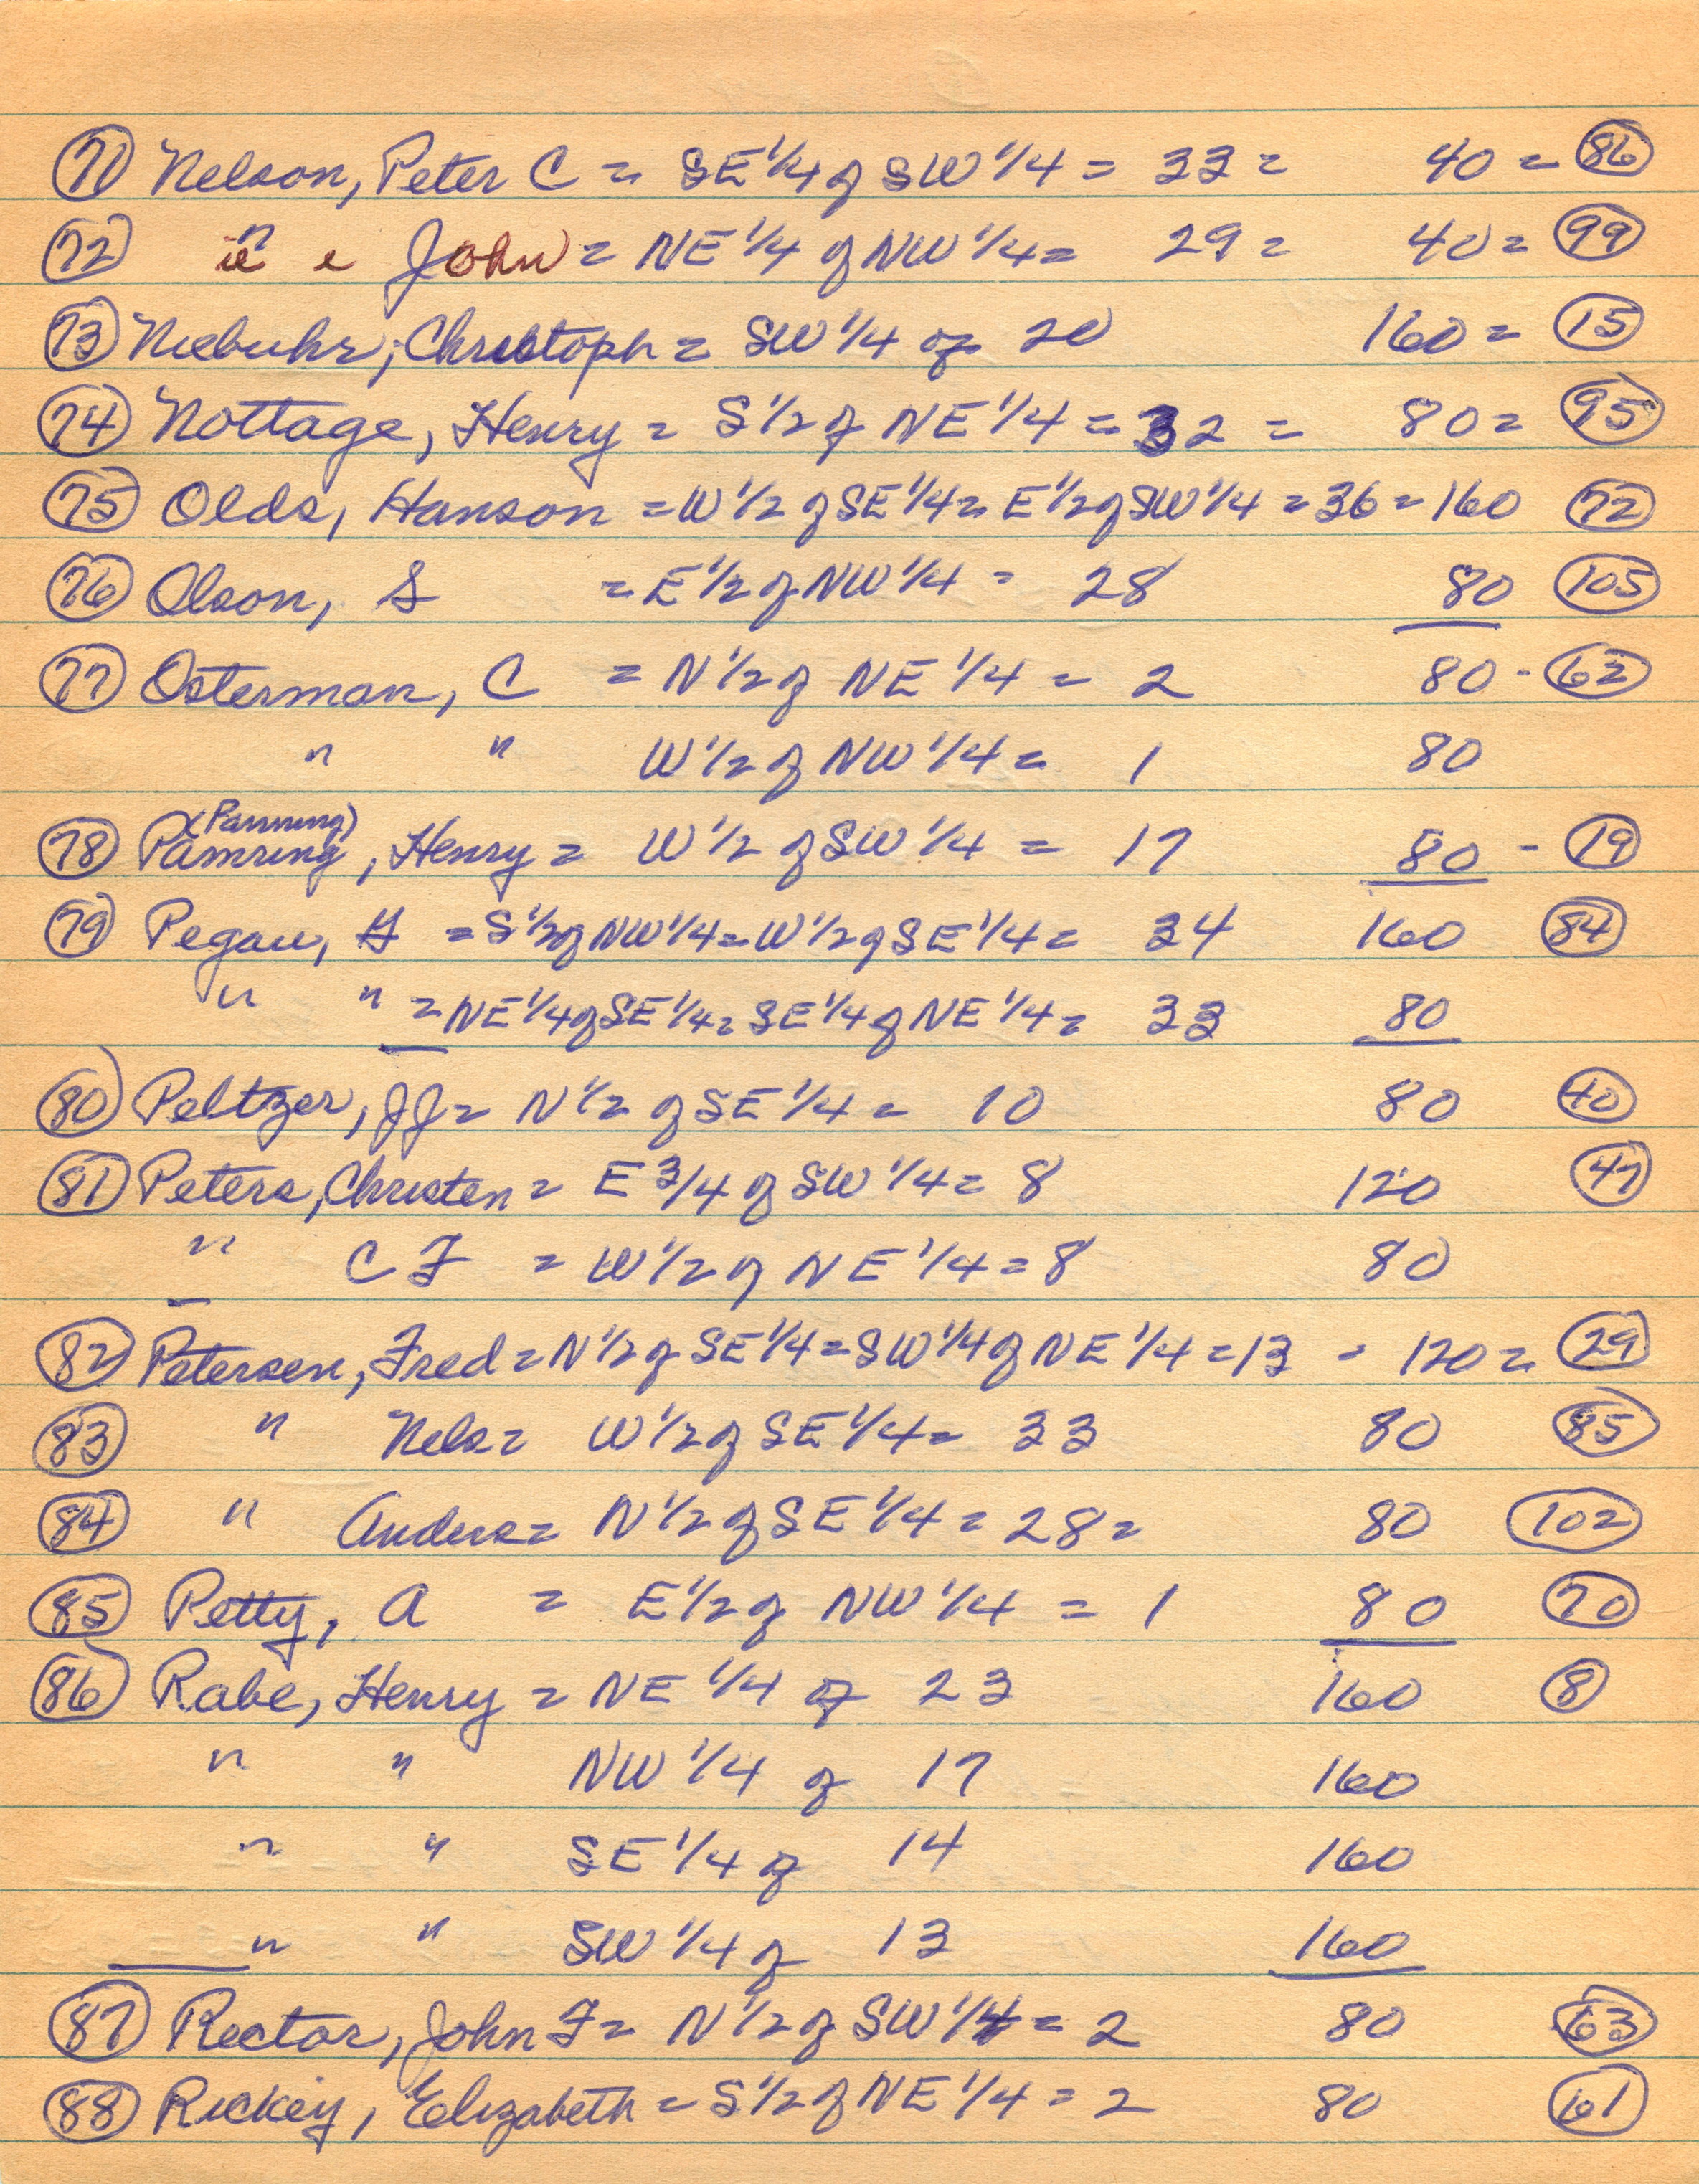 71 Nelson, Peter C = SE 1/4 of SW 1/4 = 33 = 40 = 86
72 " " John = NE 1/4 of NW 1/4 = 29 = 40 = 99
73 Niebuhr, Christoph = SW 1/4 of 20 160 = 15
74 Nottage, Henry = S 1/2 of NE 1/4 = 32 = 80 = 95
75 Olds, Hanson = W 1/2 of SE 1/4 = E 1/2 of SW 1/4 = 36 = 160 72
76 Olson, S = E 1/2 of NW 1/4 = 28 80 105
77 Osterman, C = N 1/2 of NE 1/4 = 2 80 - 62
" " W 1/2 of NW 1/4 = 1 80
(Panning)
78 Pamring, Henry = W 1/2 of SW 1/4 = 17 80 - 19
79 Pegau, H = S 1/2 of NW 1/4 = W 1/2 of SE 1/4 = 34 160 84
" " = NE 1/4 of SE 1/4 = SE 1/4 of NE 1/4 = 33 80
80 Peltzer, JJ = N 1/2 of SE 1/4 = 10 80 40
81 Peters, Christen = E 3/4 of SW 1/4 = 8 120 47
" C F = W 1/2 of NE 1/4 = 8 80
82 Petersen, Fred = N 1/2 of SE 1/4 = SW 1/4 of NE 1/4 = 13 - 120 = 29
83 " Nels = W 1/2 of SE 1/4 = 33 80 85
84 " Anders = N 1/2 of SE 1/4 = 28 = 80 102
85 Petty, A = E 1/2 of NW 1/4 = 1 80 70
86 Rabe, Henry = NE 1/4 of 23 160 8
" " NW 1/4 of 17 160
" " SE 1/4 of 14 160
" " SW 1/4 of 13 160
87 Rector, John F = N 1/2 of SW 1/4 = 2 80 63
88 Rickey, Elizabeth = S 1/2 of NE 1/4 = 2 80 61